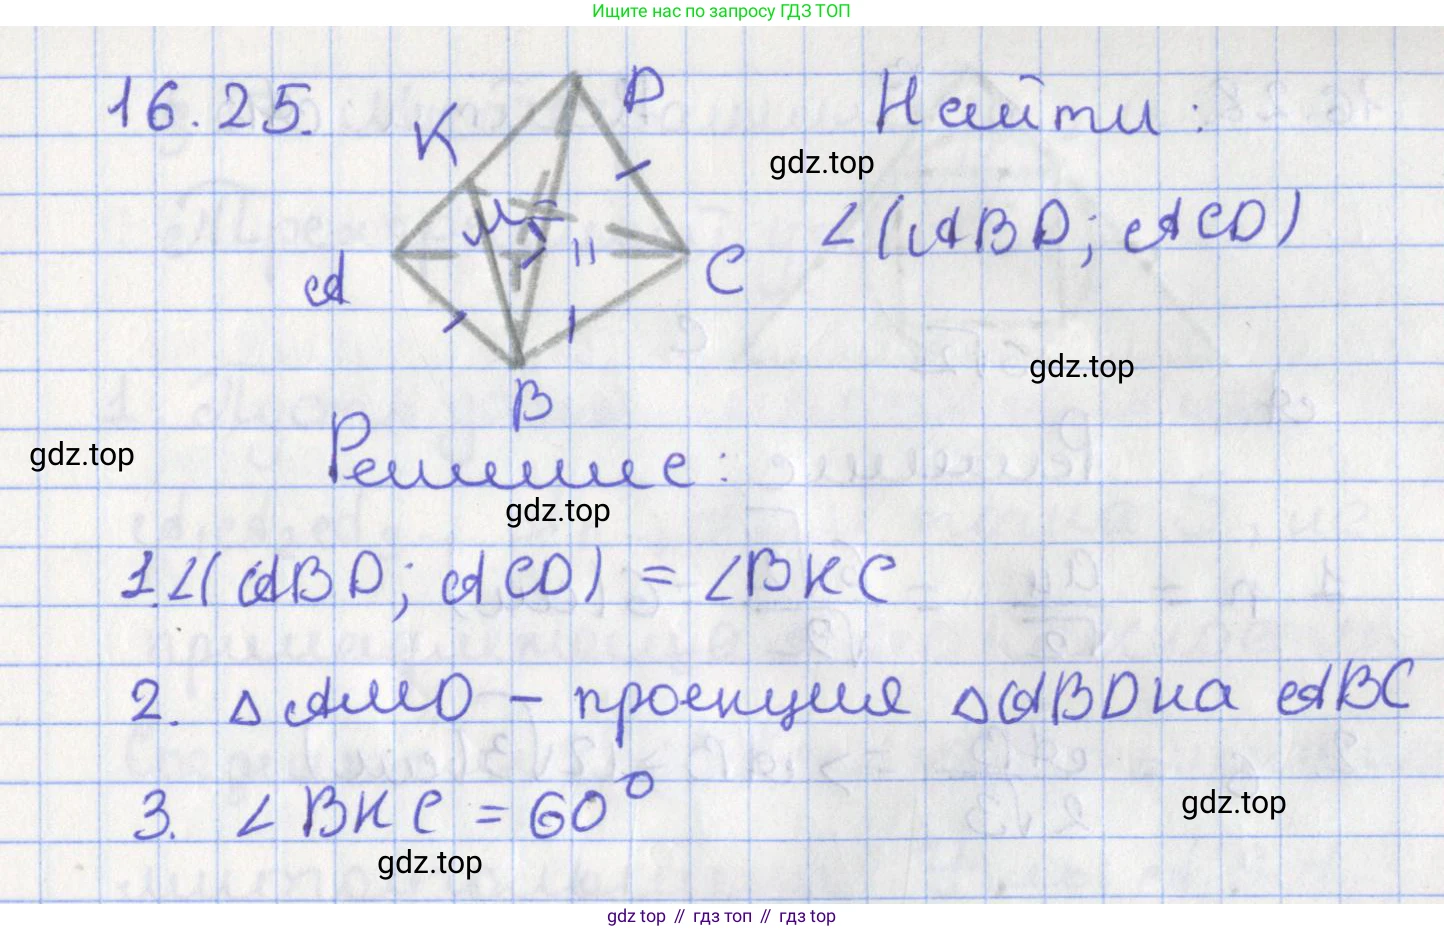 Ищите нас по запросу ГДЗ ТОП
16.25.
K
D
Найти:
gdz.top
∠(ABD; ACD)
M
A
C
gdz.top
B
gdz.top
Решение:
gdz.top
1. ∠(ABD; ACD) = ∠BKC
2. △AMD – проекция △ABD на ABC
3. ∠BKC = 60°
gdz.top
gdz.top
gdz top // гдз топ // гдз top